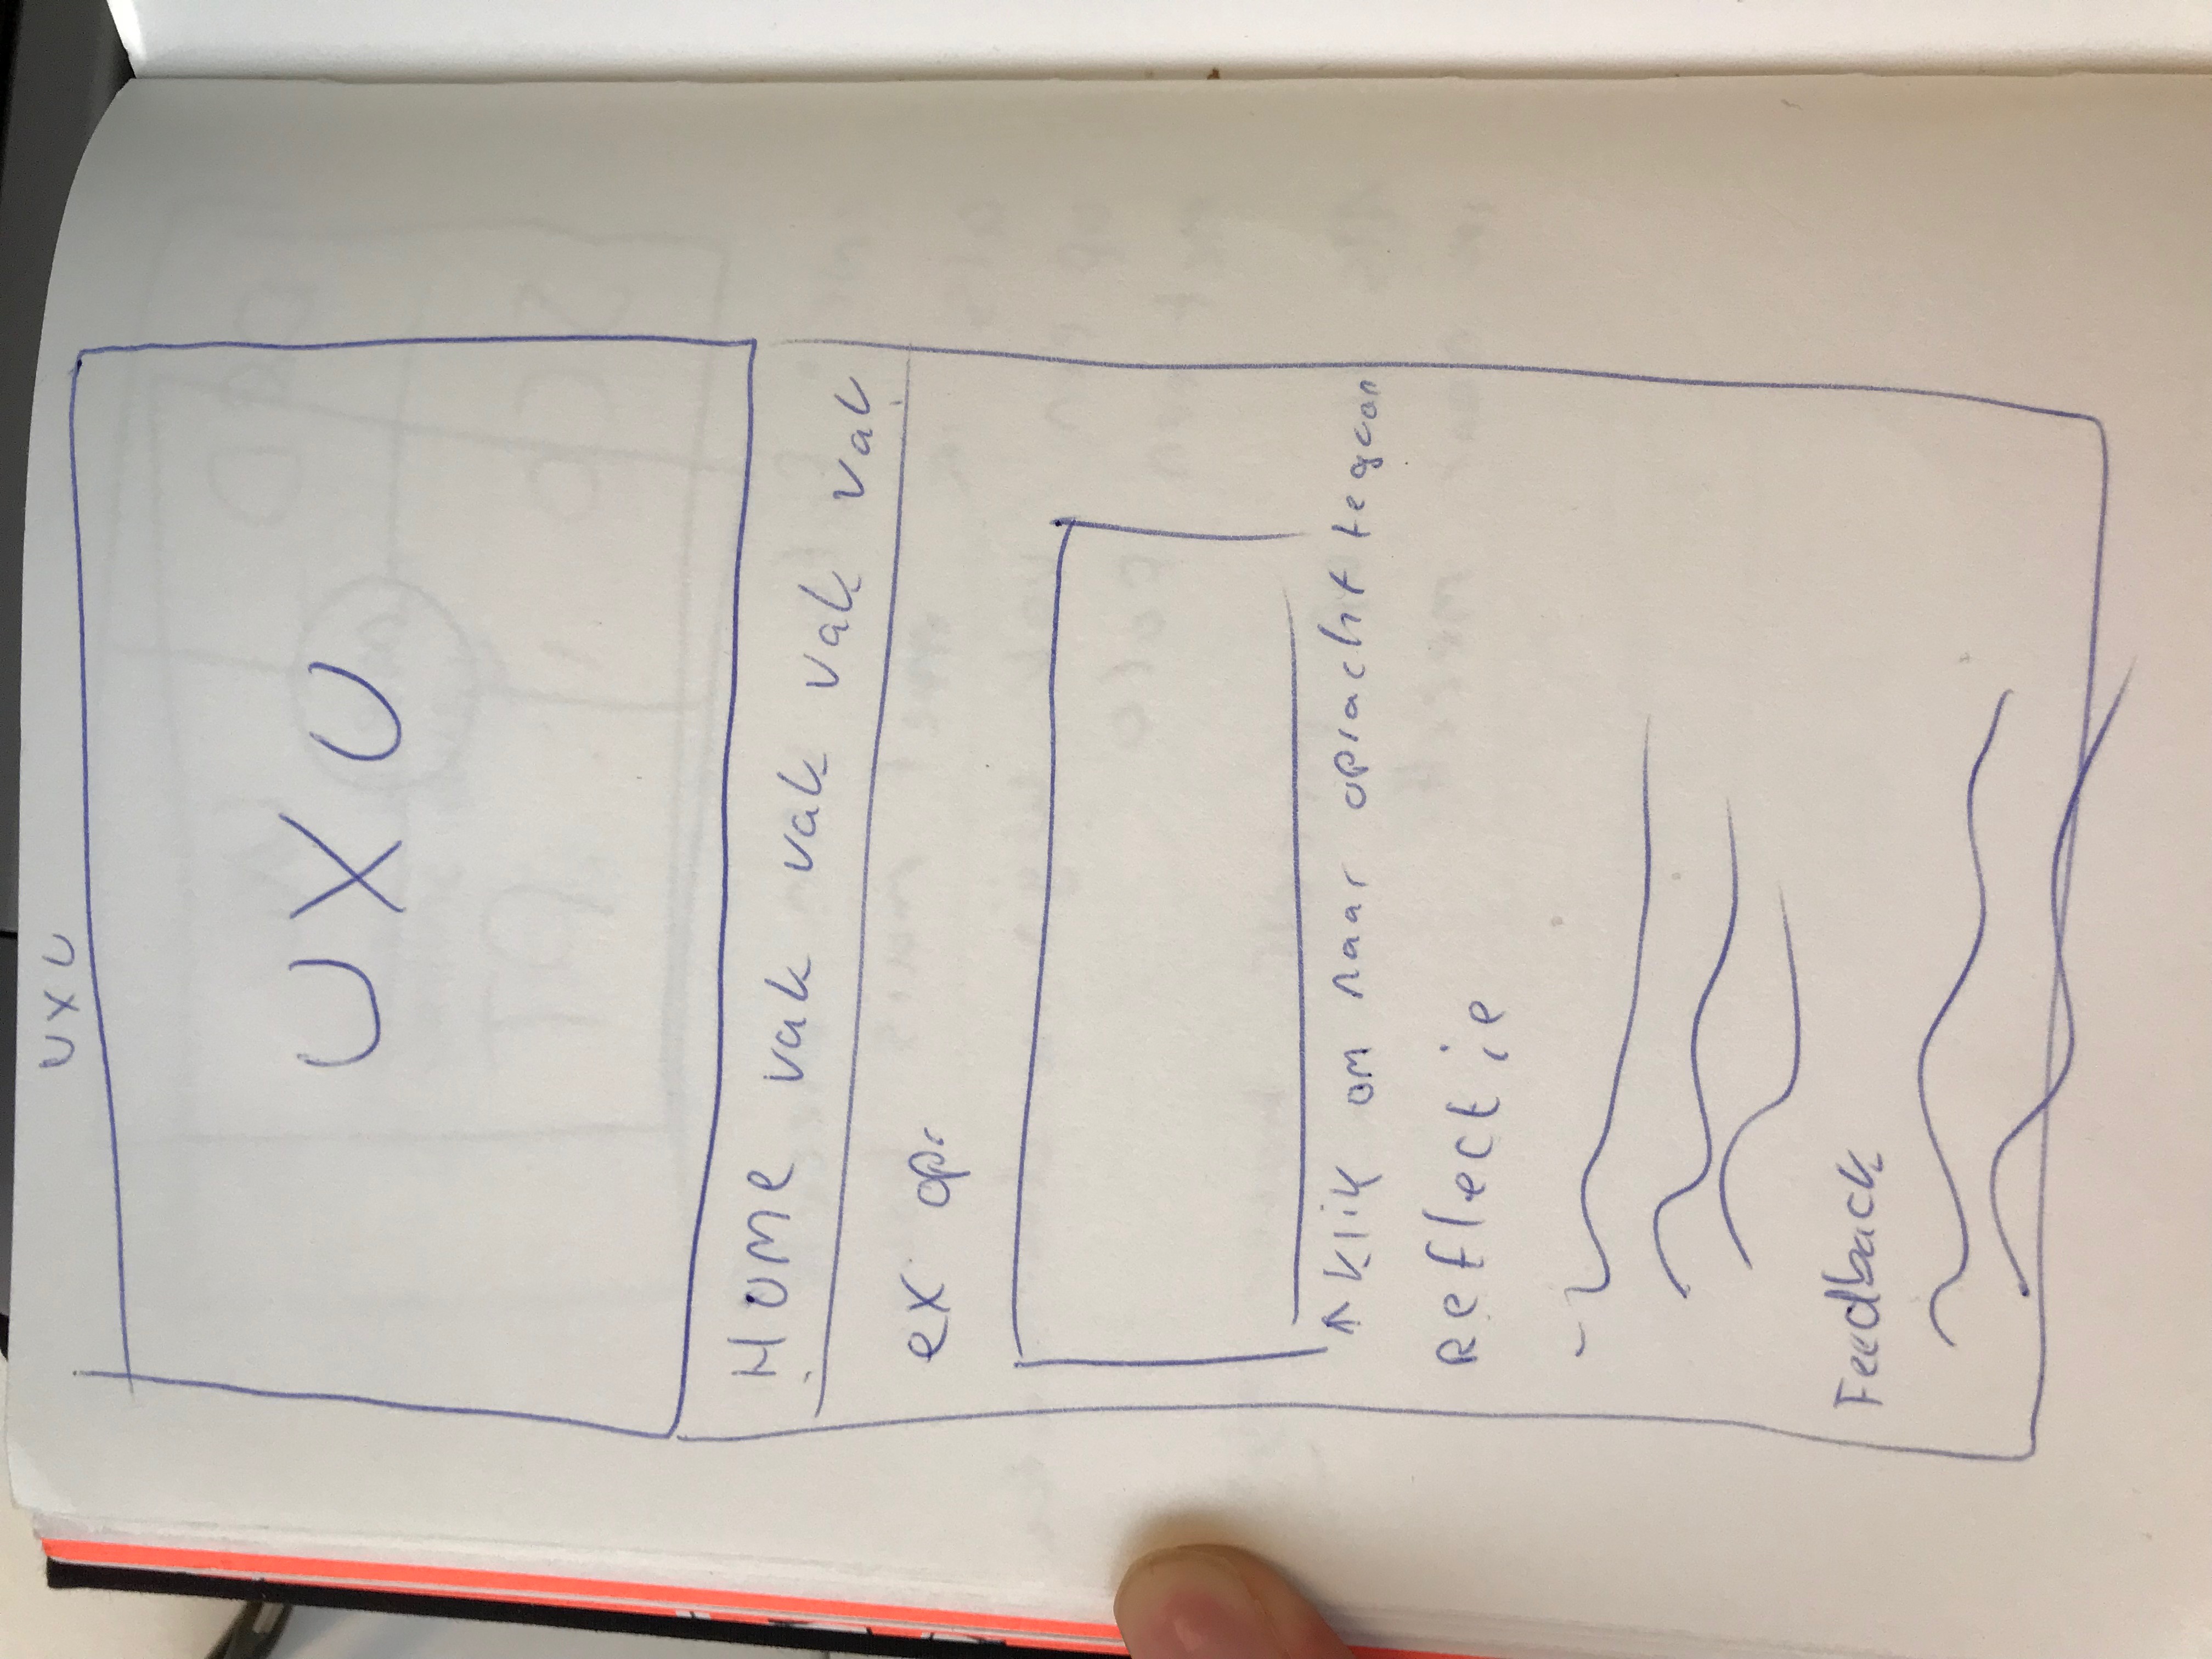 UXU
UXU
Home vak vak vak vak
ex opr
↑ klik om naar opracht te gaan
Reflectie
Feedback